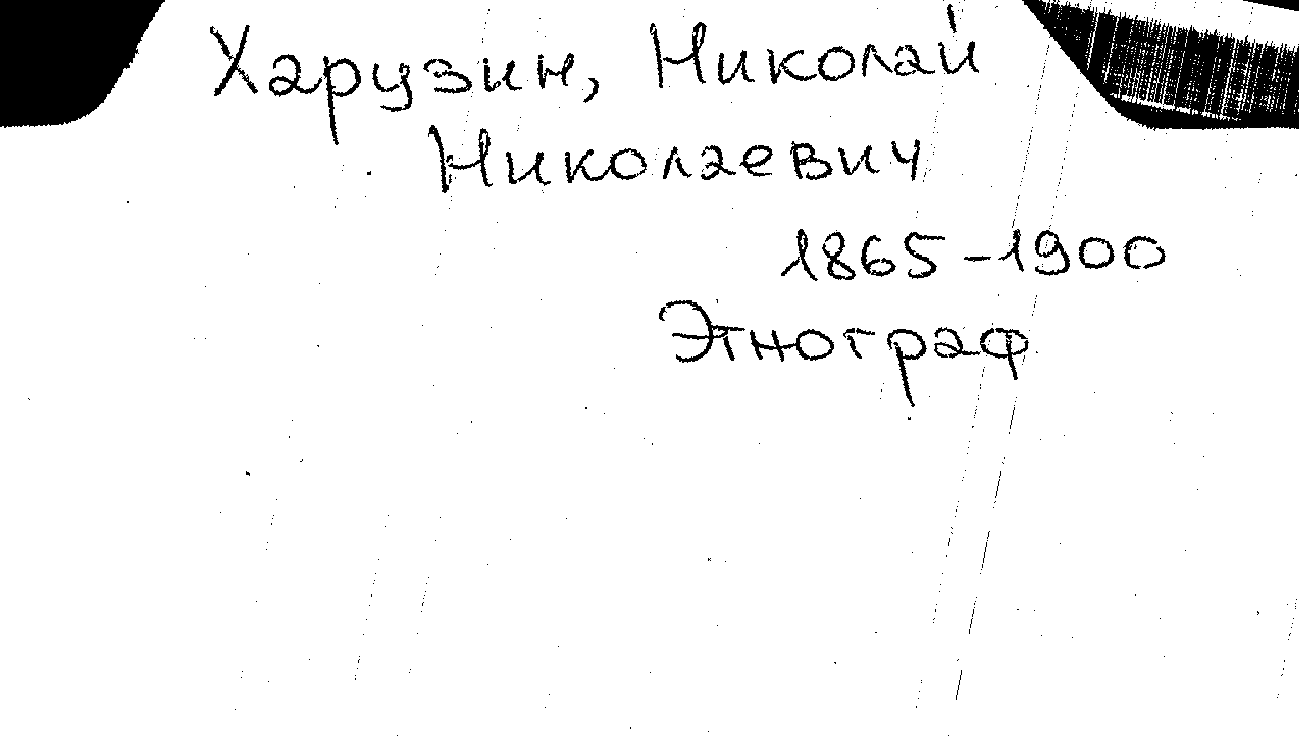 Харузин, Николай
Николаевич
1865-1900
Этнограф